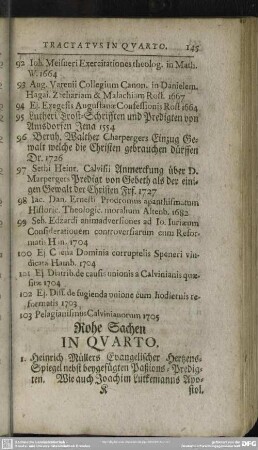 TRACTATVS IN QVARTO. 145
92 Joh. Meisneri Exercitationes theolog. in Math.
W. 1664
93 Aug. Varenii Collegium Canon. in Danielem,
Hagai. Zachariam & Malachiam Rost. 1667
94 Ej. Exegesis Augustanæ Confessionis Rost 1664
95 Lutheri Trost-Schrifften und Predigten von
Amsdorfen Jena 1554
96 Bernh. Walther Marpergers Einzug Ge-
walt welche die Christen gebrauchen dürffen
Dr. 1726
97 Sethi Heinr. Calvisii Anmerckung über D.
Marpergers Predigt von Gebeth als der eini-
gen Gewalt der Christen Frf. 1727
98 Jac. Dan. Ernesti Prodromus apanthismatum
Historic. Theologic. moralium Altenb. 1682
99 Seb. Edzardi animadversiones ad Jo. Jurianum
Considerationem controversiarum cum Refor-
matis Ham. 1704
100 Ej Cœna Dominia corruptelis Speneri vin-
dicata Hamb. 1704
101 Ej. Distrib. de causis unionis a Calvinianis quæ-
sitæ 1704
102 Ej. Diss. de fugienda unione cum hodiernis re-
formatis 1703
103 Pelagianismus Calvinianorum 1705
Rohe Sachen
IN QVARTO.
1. Heinrich Müllers Evangelischer Hertzens-
Spiegel nebst beygefügten Paßions-Predig-
ten. Wie auch Joachim Lütkemanns Apo-
K stol.